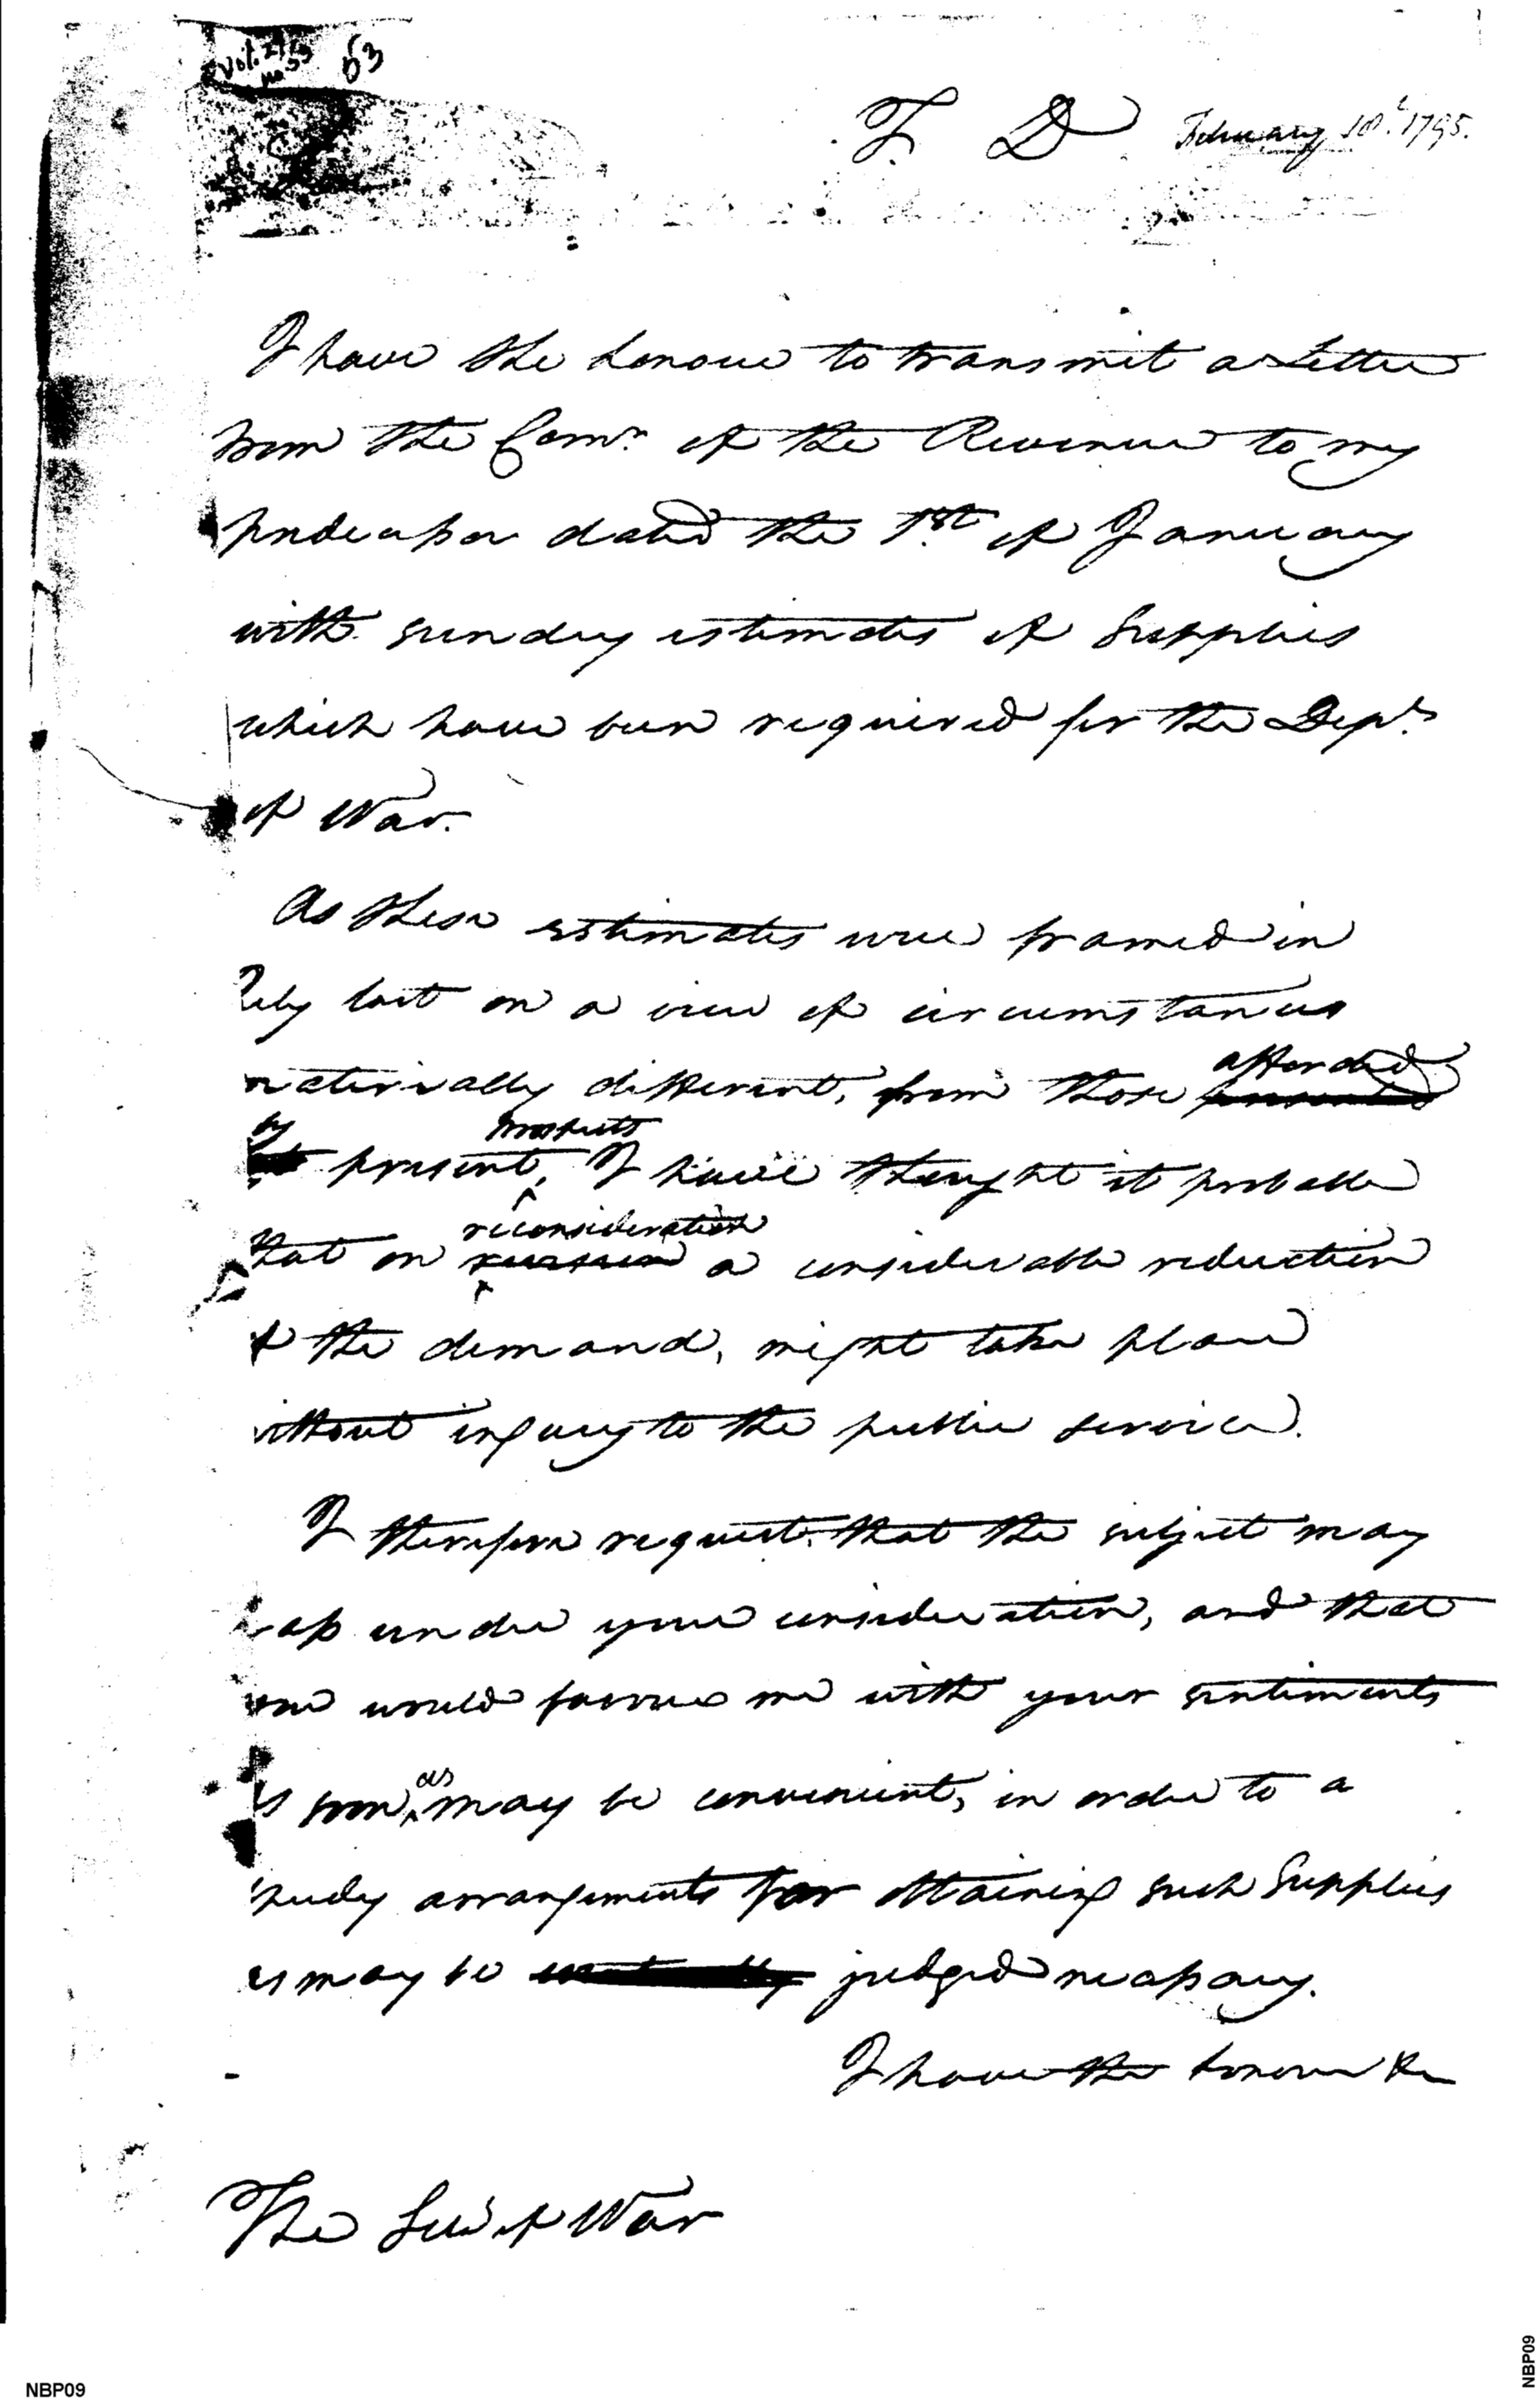 Vol. 2
No. 53
53
T. D. February 10th. 1795.
I have the honour to transmit a Letter
from the Comr. of the Revenue to my
predecessor dated the 1st. of January
with sundry estimates of Supplies
which have been required for the Dept.
of War.
As these estimates were framed in
July last on a view of circumstances
afforded
materially different, from those presented
by prospects
at present, I have thought it probable
reconsideration
that on revision a considerable reduction
of the demand, might take place
without injury to the public service.
I therefore request that the subject may
pass under your consideration, and that
you would favour me with your sentiments
as
as soon may be convenient, in order to a
speedy arrangements for obtaining such Supplies
as may be judged necessary.
I have the honour &c
The Secy of War
NBP09
NBP09